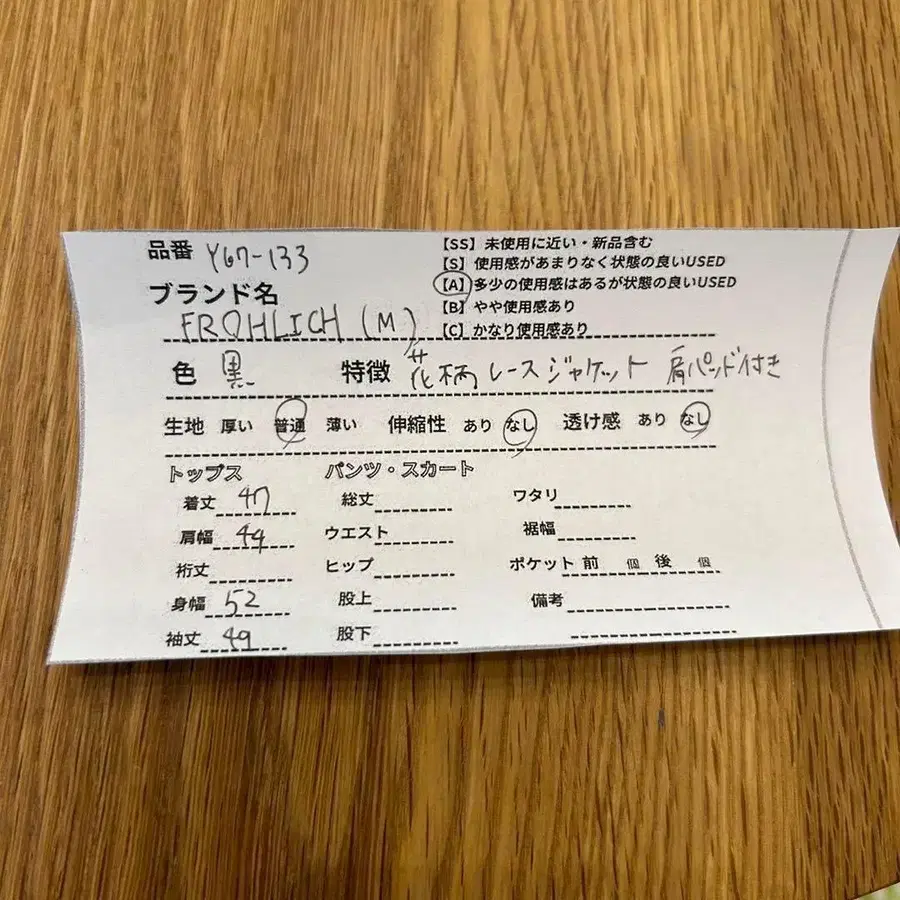 品番 Y67-133
ブランド名
FROHLICH (M)
【SS】未使用に近い・新品含む
【S】使用感があまりなく状態の良いUSED
【A】多少の使用感はあるが状態の良いUSED
【B】やや使用感あり
【C】かなり使用感あり
色 黒 特徴 花柄レースジャケット 肩パッド付き
生地 厚い 普通 薄い 伸縮性 あり なし 透け感 あり なし
トップス パンツ・スカート
着丈 47 総丈 ワタリ
肩幅 44 ウエスト 裾幅
裄丈 ヒップ ポケット 前 個 後 個
身幅 52 股上 備考
袖丈 49 股下